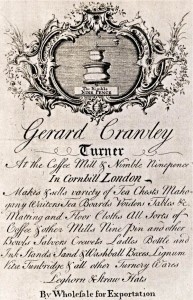 The Nimble
NINE PENCE
Gerard Crawley
Turner
At the Coffee Mill & Nimble Ninepence
In Cornhill London
Makes & sells variety of Tea Chests Maho-
gany Waiters Tea Boards Voiders Tables &c
Matting and Floor Cloths All Sorts of
Coffee & other Mills Nine Pin and other
Bowls Salvers Cruets Ladles Bottle and
Ink Stands Sand & Washball Boxes Lignum
Vitæ Tunbridge & all other Turnery Wares
Leghorn & straw Hats
By Wholesale for Exportation